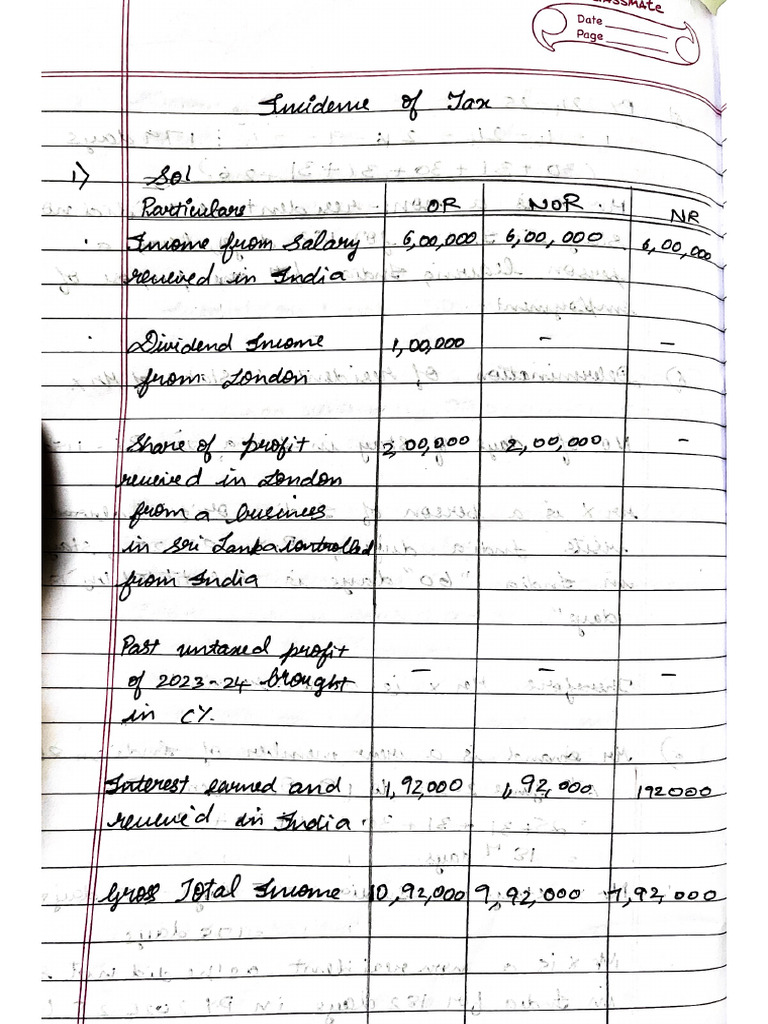 CLASSMATE
Date
Page
Incidence of Tax
1) Sol
Particulars OR NOR NR
Income from Salary 6,00,000 6,00,000 6,00,000
received in India
Dividend Income 1,00,000 - -
from London
Share of profit 2,00,000 2,00,000 -
received in London
from a business
in Sri Lanka controlled
from India
Past untaxed profit
of 2023-24 brought - - -
in CY.
Interest earned and 1,92,000 1,92,000 192000
received in India.
Gross Total Income 10,92,000 9,92,000 7,92,000